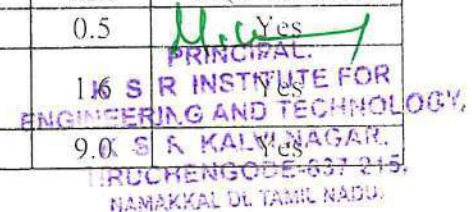 0.5 Yes
PRINCIPAL.
1.6 Yes
K S R INSTITUTE FOR
ENGINEERING AND TECHNOLOGY,
9.0 Yes
K S R KALVI NAGAR,
TIRUCHENGODE-637 215,
NAMAKKAL Dt. TAMIL NADU.